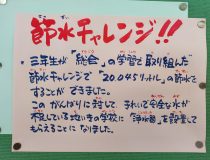 節水チャレンジ!!
せっ すい
・三年生が「総合」の学習で取り組んだ
節水チャレンジで"20045リットル"の節水を
することができました。
このがんばりに対して、きれいで安全な水が
不足している地いきの学校に「浄水器」を設置して
もらえることになりました。